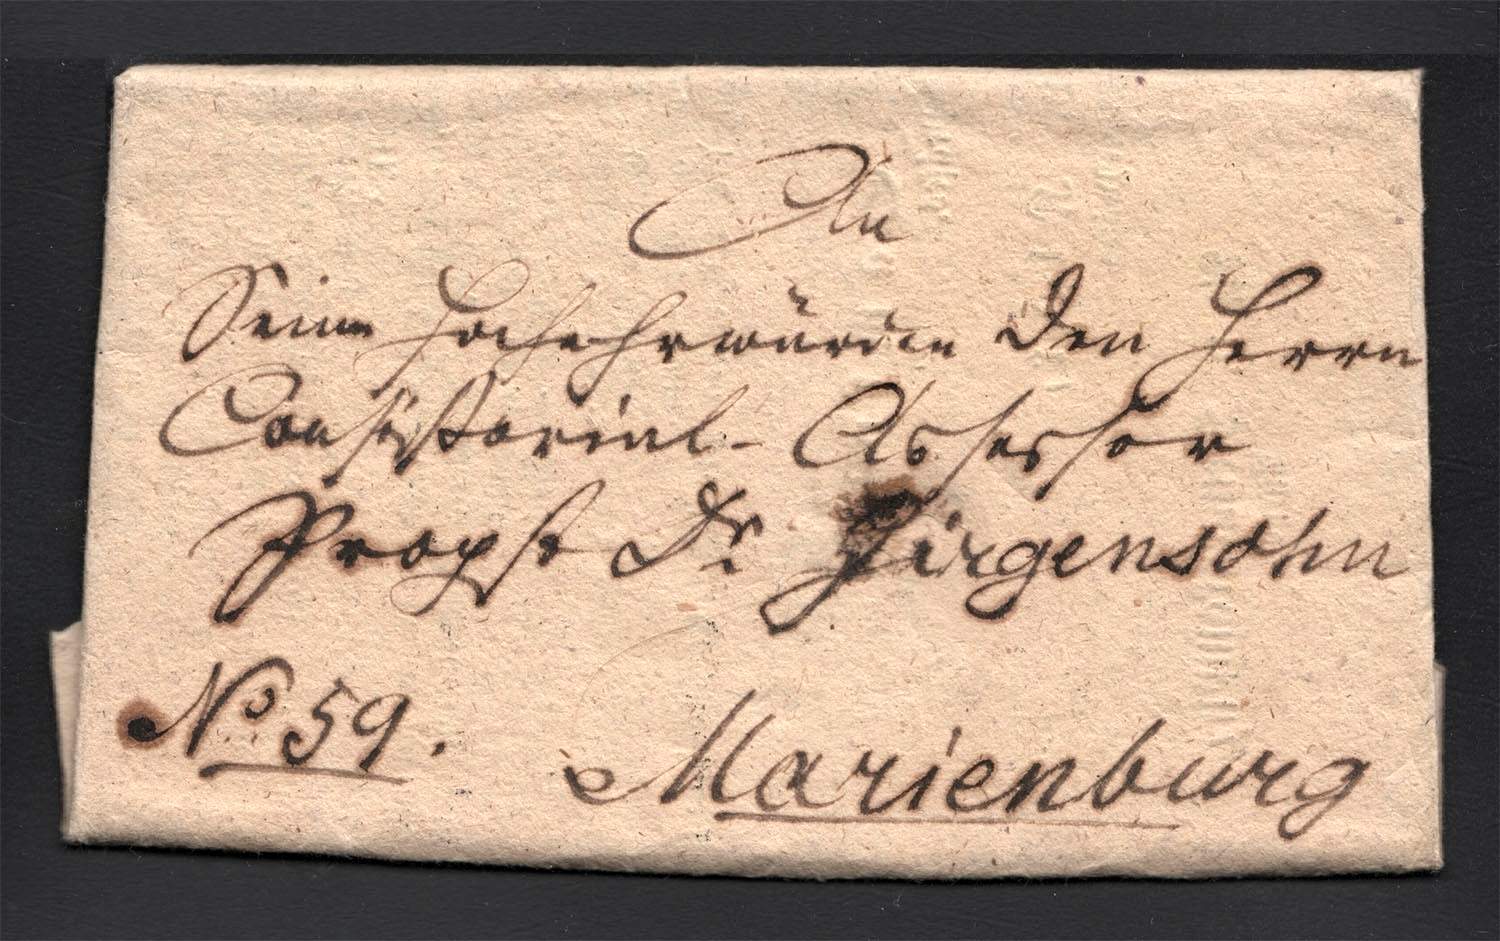 An
Seine Hochehrwürden den Herrn
Consistorial- Assessor
Propst Dr Girgensohn
No 59.
Marienburg